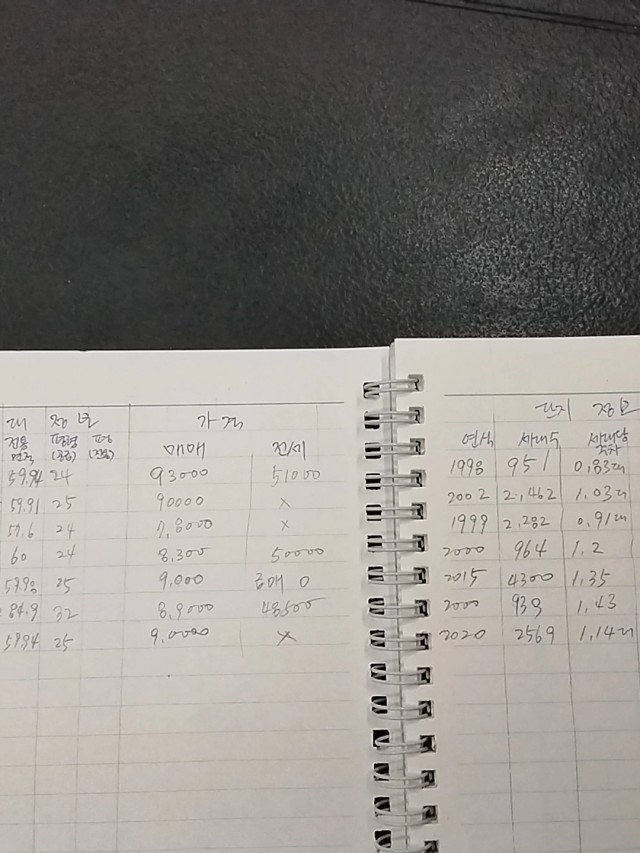 정보 가격
전용 평형 평당 매매 전세
면적 (공급) (전용)
59.94 24 93000 51000
59.91 25 90000 x
59.6 24 7,8000 x
60 24 8,300 50000
59.98 25 9,000 0
84.9 32 8,9000 48500
59.94 25 9,0000 x
단지 정보
연식 세대수 세대당
주차
1998 951 0.83대
2002 2,462 1.03대
1999 2,282 0.91대
2000 964 1.2
2015 4300 1.35
2000 939 1,43
2020 2569 1,14대